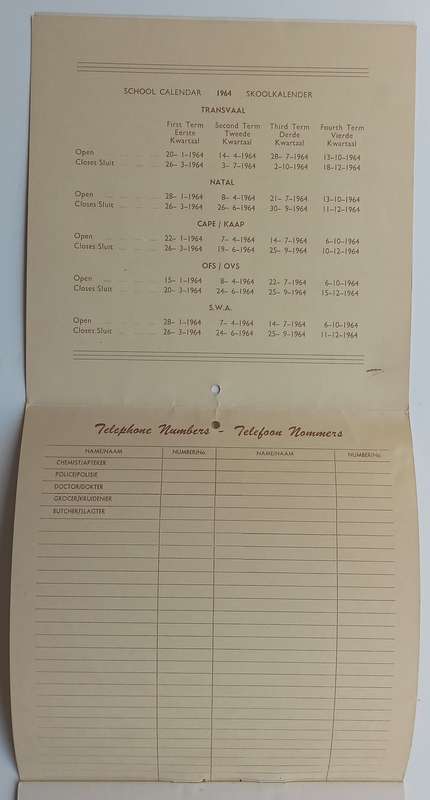 SCHOOL CALENDAR 1964 SKOOLKALENDER
TRANSVAAL
First Term Second Term Third Term Fourth Term
Eerste Tweede Derde Vierde
Kwartaal Kwartaal Kwartaal Kwartaal
Open 20– 1–1964 14– 4–1964 28– 7–1964 13–10–1964
Closes Sluit 26– 3–1964 3– 7–1964 2–10–1964 18–12–1964
NATAL
Open 28– 1–1964 8– 4–1964 21– 7–1964 13–10–1964
Closes Sluit 26– 3–1964 26– 6–1964 30– 9–1964 11–12–1964
CAPE / KAAP
Open 22– 1–1964 7– 4–1964 14– 7–1964 6–10–1964
Closes Sluit 26– 3–1964 19– 6–1964 25– 9–1964 10–12–1964
OFS / OVS
Open 15– 1–1964 8– 4–1964 22– 7–1964 6–10–1964
Closes Sluit 20– 3–1964 24– 6–1964 25– 9–1964 15–12–1964
S.W.A.
Open 28– 1–1964 7– 4–1964 14– 7–1964 6–10–1964
Closes Sluit 26– 3–1964 24– 6–1964 25– 9–1964 11–12–1964
Telephone Numbers - Telefoon Nommers
NAME/NAAM NUMBER/No. NAME/NAAM NUMBER/No.
CHEMIST/APTEKER
POLICE/POLISIE
DOCTOR/DOKTER
GROCER/KRUIDENIER
BUTCHER/SLAGTER